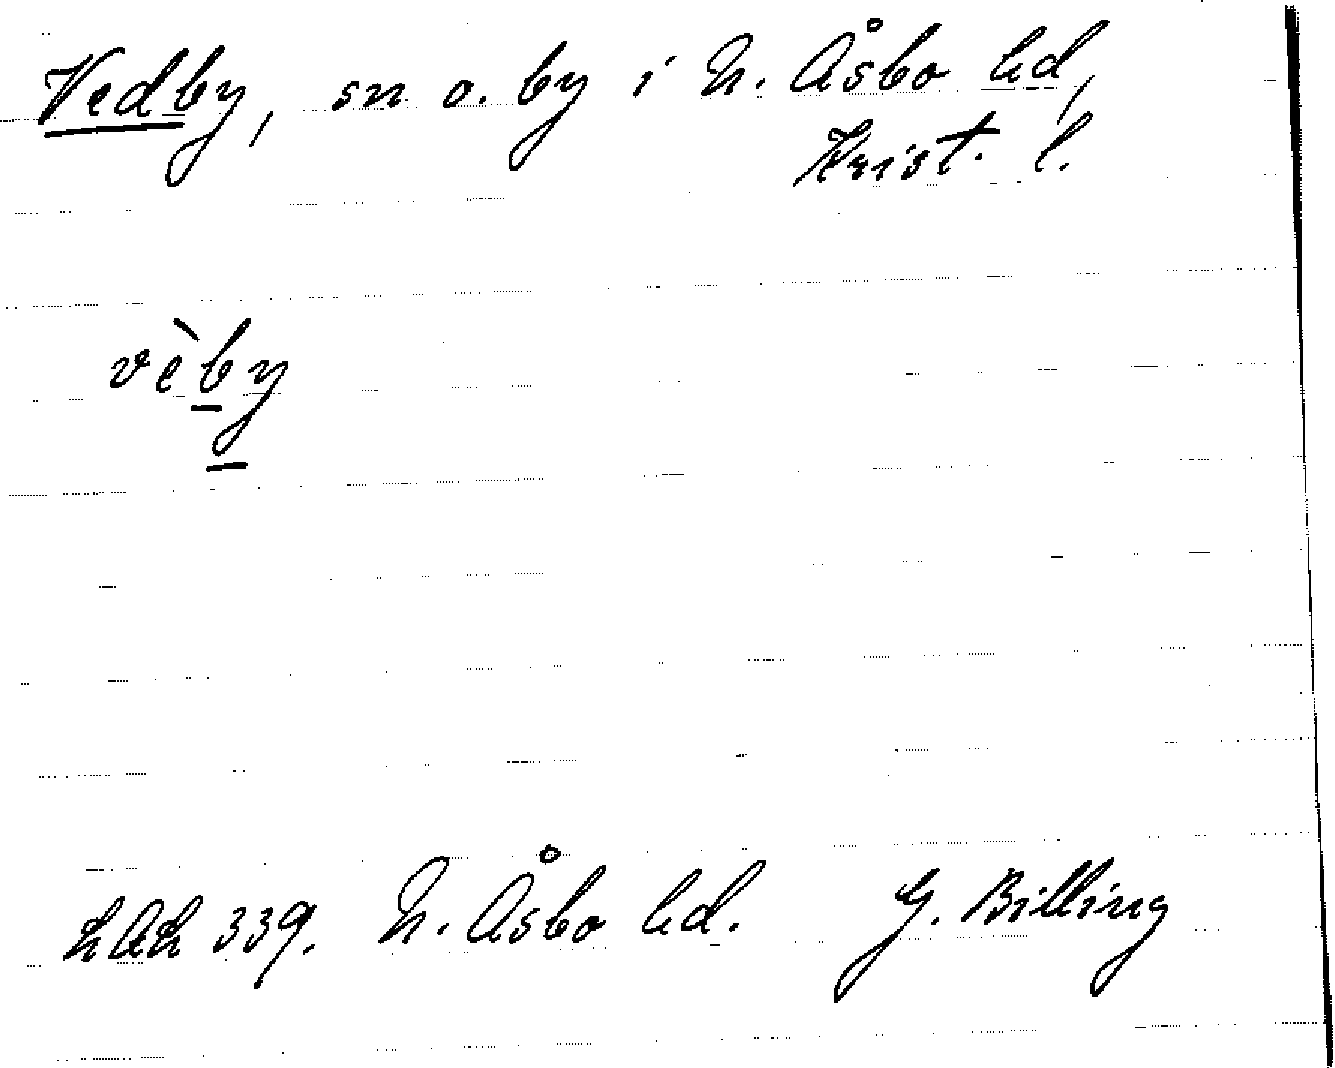 Vedby, sn o. by i N. Åsbo hd,
Krist. l.
vèby
LAL 339. N. Åsbo hd. G. Billing